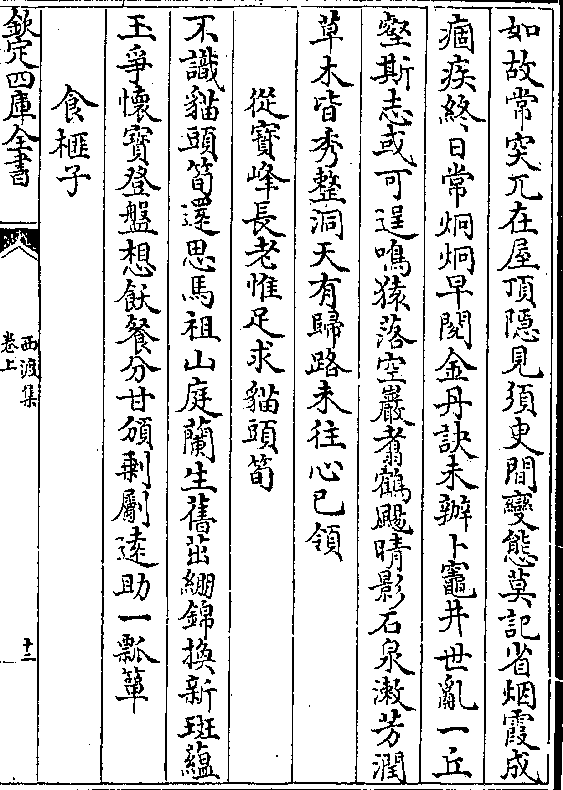 如故常突兀在屋頂隱見須臾間變態莫記省烟霞成
痼疾終日常炯炯早閱金丹訣未辦卜竈井世亂一丘
壑斯志或可逞鳴猿落空巖翥鶴颺晴影石泉漱芳潤
草木皆秀整洞天有歸路未往心已領
從寳峰長老惟足求貓頭筍
不識貓頭筍還思馬祖山庭蘭生舊茁綳錦換新斑藴
玉爭懷寳登盤想飫餐分甘頒剩劚逺助一瓢簞
食榧子
欽定四庫全書
西渡集
卷上
十二